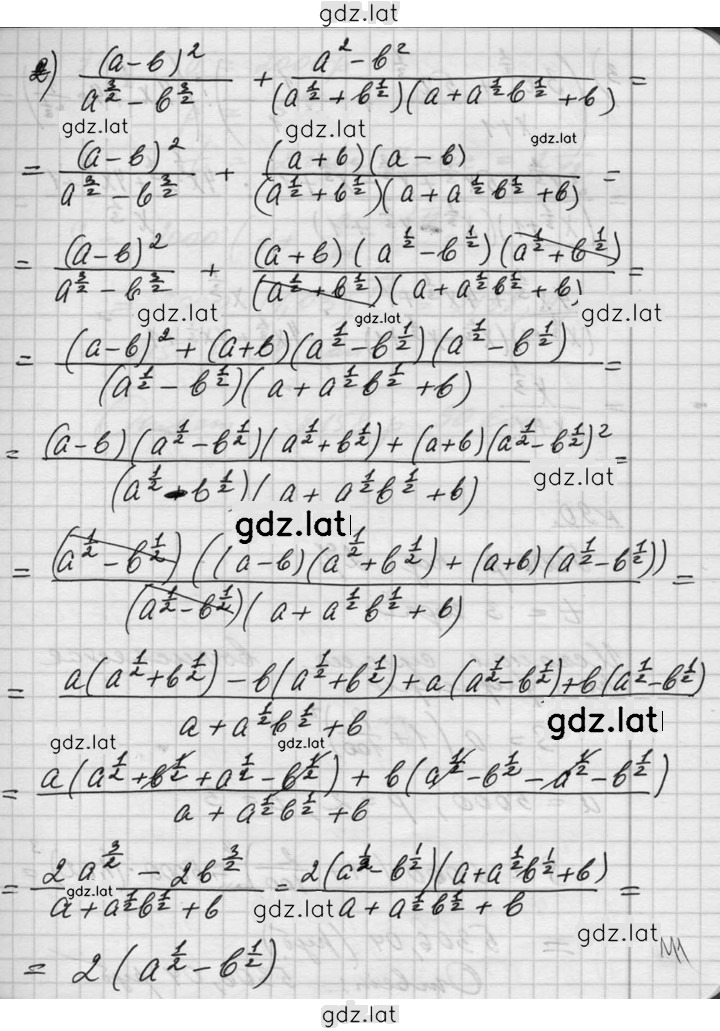 gdz.lat
2) (a-b)² / (a^{3/2} - b^{3/2}) + (a² - b²) / ((a^{1/2} + b^{1/2})(a + a^{1/2}b^{1/2} + b)) =
gdz.lat gdz.lat gdz.lat
= (a-b)² / (a^{3/2} - b^{3/2}) + (a+b)(a-b) / ((a^{1/2} + b^{1/2})(a + a^{1/2}b^{1/2} + b)) =
= (a-b)² / (a^{3/2} - b^{3/2}) + (a+b)(a^{1/2} - b^{1/2})(a^{1/2} + b^{1/2}) / ((a^{1/2} + b^{1/2})(a + a^{1/2}b^{1/2} + b)) =
gdz.lat gdz.lat gdz.lat
= ((a-b)² + (a+b)(a^{1/2} - b^{1/2})(a^{1/2} - b^{1/2})) / ((a^{1/2} - b^{1/2})(a + a^{1/2}b^{1/2} + b)) =
= ((a-b)(a^{1/2} - b^{1/2})(a^{1/2} + b^{1/2}) + (a+b)(a^{1/2} - b^{1/2})²) / ((a^{1/2} - b^{1/2})(a + a^{1/2}b^{1/2} + b)) =
gdz.lat
gdz.lat
= (a^{1/2} - b^{1/2})((a-b)(a^{1/2} + b^{1/2}) + (a+b)(a^{1/2} - b^{1/2})) / ((a^{1/2} - b^{1/2})(a + a^{1/2}b^{1/2} + b)) =
= (a(a^{1/2} + b^{1/2}) - b(a^{1/2} + b^{1/2}) + a(a^{1/2} - b^{1/2}) + b(a^{1/2} - b^{1/2})) / (a + a^{1/2}b^{1/2} + b)
gdz.lat gdz.lat gdz.lat
= (a(a^{1/2} + b^{1/2} + a^{1/2} - b^{1/2}) + b(a^{1/2} - b^{1/2} - a^{1/2} - b^{1/2})) / (a + a^{1/2}b^{1/2} + b)
= (2a^{3/2} - 2b^{3/2}) / (a + a^{1/2}b^{1/2} + b) = 2(a^{1/2} - b^{1/2})(a + a^{1/2}b^{1/2} + b) / (a + a^{1/2}b^{1/2} + b) =
gdz.lat gdz.lat gdz.lat
= 2(a^{1/2} - b^{1/2})
gdz.lat